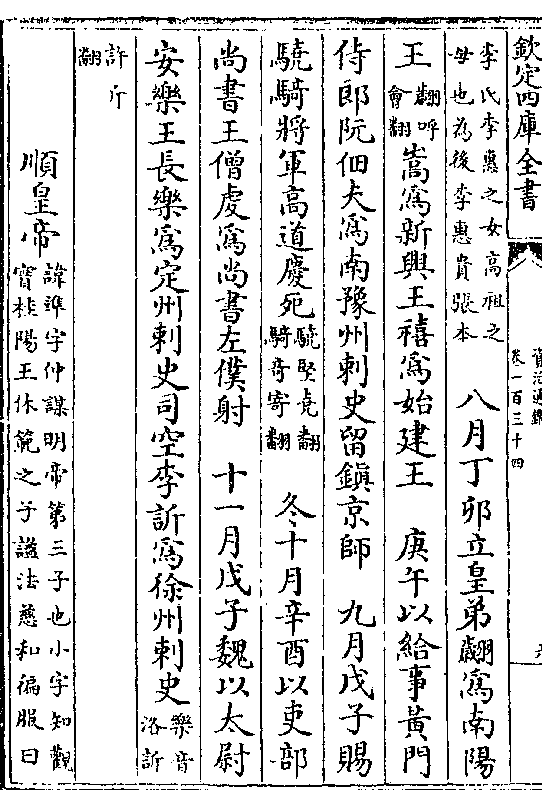 欽定四庫全書
資治通鑑
卷一百三十四
李氏李惠之女高祖之
母也為後李惠貴張本
八月丁卯立皇弟翽為南陽
王
翽呼
會翻
嵩為新興王禧為始建王 庚午以給事黃門
侍郎阮佃夫為南豫州刺史留鎮京師 九月戊子賜
驍騎將軍高道慶死
驍堅堯翻
騎奇寄翻
冬十月辛酉以吏部
尚書王僧虔為尚書左僕射 十一月戊子魏以太尉
安樂王長樂為定州刺史司空李訢為徐州刺史
樂音
洛訢
許斤
翻
順皇帝
諱準字仲謀明帝第三子也小字知觀
實桂陽王休範之子諡法慈和徧服曰